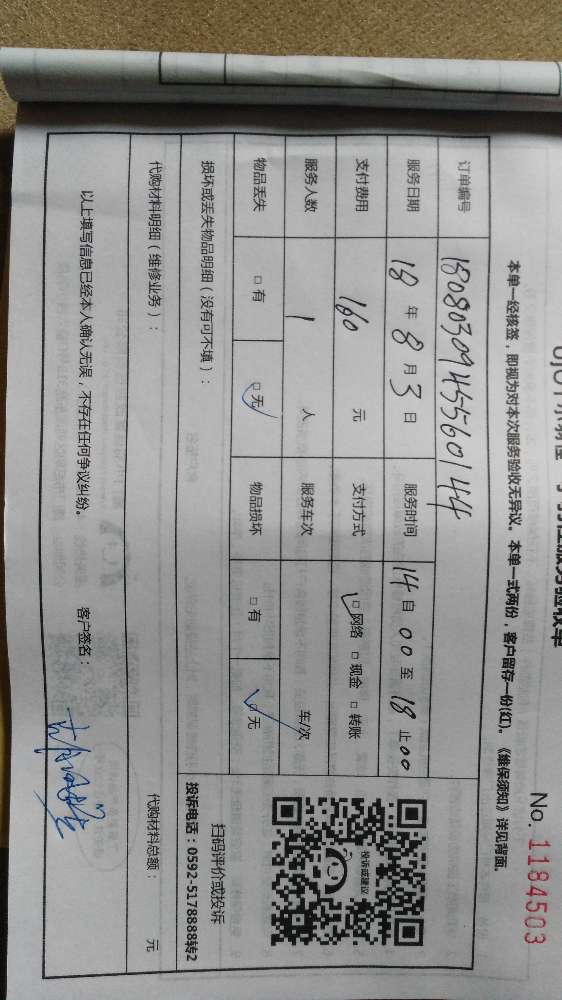 No. 1184503
本单一经核签，即视为对本次服务验收无异议。本单一式两份，客户留存一份(红)。《维保须知》详见背面。
订单编号 18080309455560144
服务日期 18 年 8 月 3 日 服务时间 14 自 00 至 18 止 00
支付费用 160 元 支付方式 □ 网络 □ 现金 □ 转账
服务人数 1 人 服务车次 车/次
物品丢失 □ 有 □ 无 物品损坏 □ 有 □ 无
投诉或建议
扫码评价或投诉
投诉电话：0592-5178888转2
损坏或丢失物品明细（没有可不填）：
代购材料明细（维修业务）： 代购材料总额： 元
以上填写信息已经本人确认无误，不存在任何争议纠纷。 客户签名：